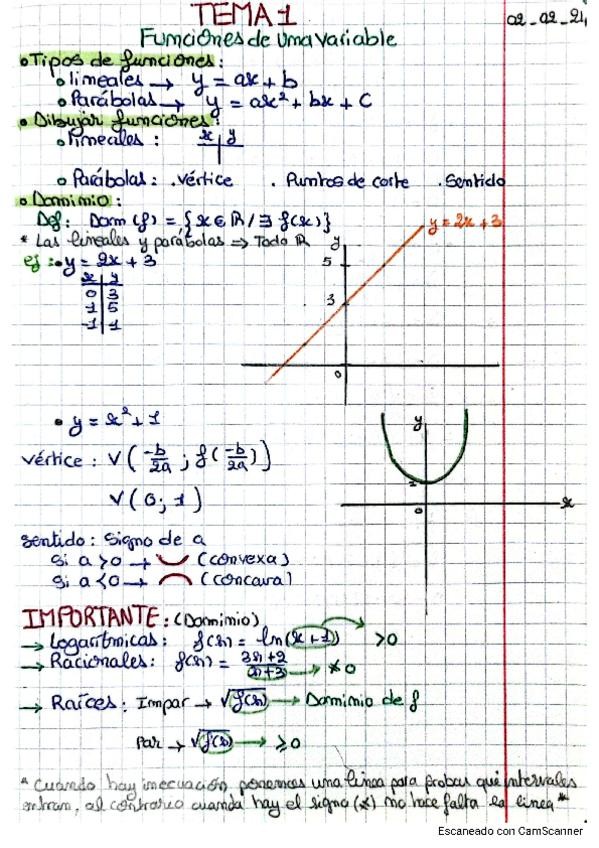 TEMA 1
02-02-24
Funciones de una variable
• Tipos de funciones:
• lineales → y = ax + b
• Parábolas → y = ax² + bx + C
• Dibujar funciones:
• lineales: x | y
• Parábolas: . vértice . Puntos de corte . Sentido
• Dominio:
Def: Dom (f) = {x ∈ ℝ / ∃ f(x)}
* Las lineales y parábolas ⇒ Todo ℝ
ej: • y = 2x + 3
x | y
0 | 3
1 | 5
-1 | 1
y
y = 2x + 3
5
3
0
• y = x² + 1
vértice: V(-b/2a ; f(-b/2a))
V(0; 1)
y
0
x
sentido: Signo de a
Si a > 0 → ⌣ (convexa)
Si a < 0 → ⌢ (concava)
IMPORTANTE: (Dominio)
→ Logarítmicas: f(x) = ln(x+1) > 0
→ Racionales: f(x) = 3x+2 / x+3 → ≠ 0
→ Raíces: Impar → √f(x) → Dominio de f
Par → √f(x) → ≥ 0
* Cuando hay inecuación ponemos una linea para probar qué intervales
entran, al contrario cuando hay el signo (≠) no hace falta la linea *
Escaneado con CamScanner